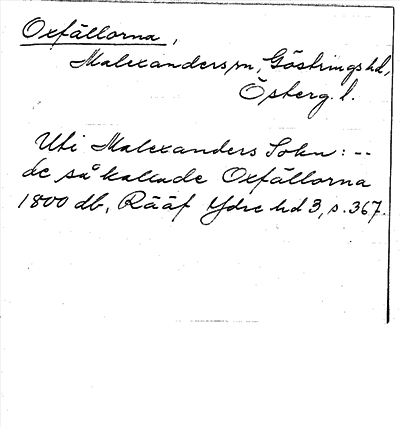 Oxfällorna,
Malexanders sn, Göstrings hd,
Österg. l.
Uti Malexanders Sokn: --
de så kallade Oxfällorna
1800 db, Rääf Ydre hd 3, s. 367.